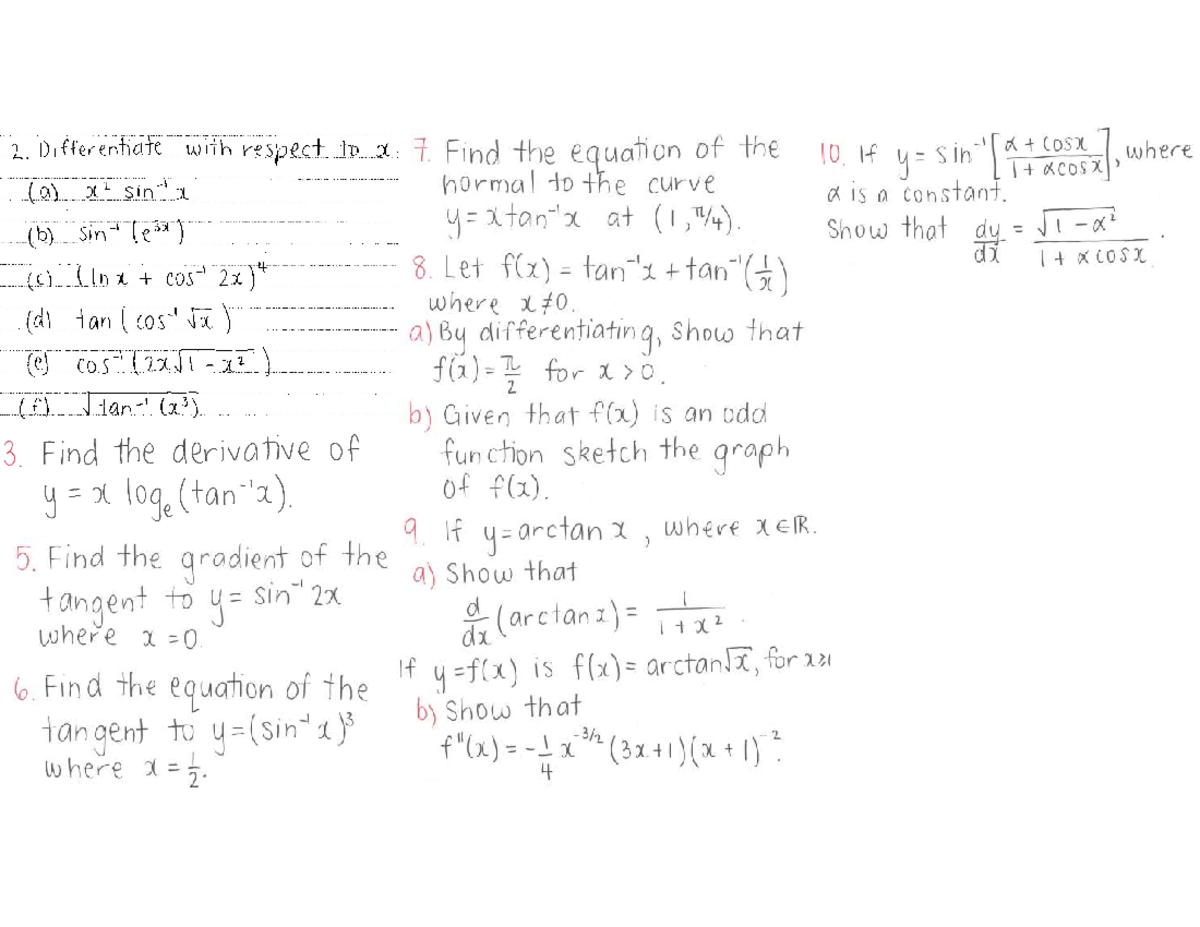 2. Differentiate with respect to x:
(a) x² sin⁻¹ x
(b) sin⁻¹ (e³ˣ)
(c) (ln x + cos⁻¹ 2x)⁴
(d) tan (cos⁻¹ √x)
(e) cos⁻¹ (2x√(1 - x²))
(f) √(tan⁻¹ (x³))
3. Find the derivative of
y = x logₑ (tan⁻¹x).
5. Find the gradient of the
tangent to y = sin⁻¹ 2x
where x = 0.
6. Find the equation of the
tangent to y = (sin⁻¹ x)³
where x = 1/2.
7. Find the equation of the
normal to the curve
y = x tan⁻¹x at (1, π/4).
8. Let f(x) = tan⁻¹x + tan⁻¹(1/x)
where x ≠ 0.
a) By differentiating, show that
f(x) = π/2 for x > 0.
b) Given that f(x) is an odd
function sketch the graph
of f(x).
9. If y = arctan x, where x ∈ ℝ.
a) Show that
d/dx (arctan x) = 1/(1 + x²).
If y = f(x) is f(x) = arctan √x, for x ≥ 1
b) Show that
f"(x) = -1/4 x^(-3/2) (3x + 1)(x + 1)⁻².
10. If y = sin⁻¹ [(α + cos x)/(1 + α cos x)], where
α is a constant.
Show that dy/dx = √(1 - α²)/(1 + α cos x).